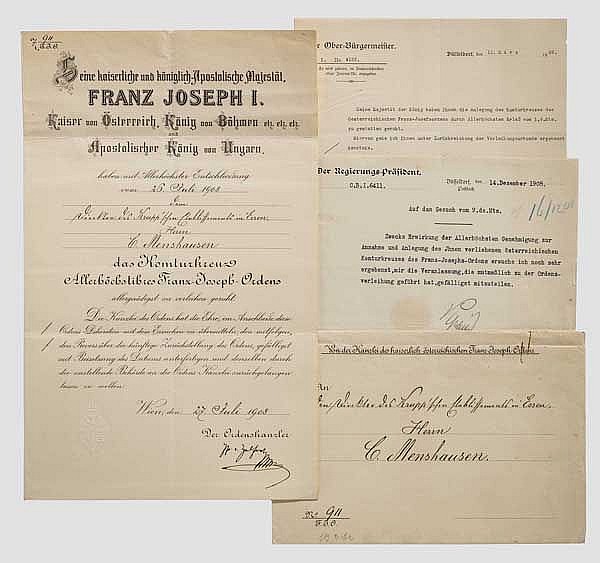 911
F.J.O.
Seine kaiserliche und königlich-Apostolische Majestät,
FRANZ JOSEPH I.
Kaiser von Österreich, König von Böhmen etz. etz. etz.
und
Apostolischer König von Ungarn,
haben mit Allerhöchster Entschliessung
vom 26. Juli 1908
dem
Direktor des Krupp'schen Etablissements in Essen
Herrn
C. Menshausen
das Komturkreuz
Allerhöchstihres Franz-Joseph-Ordens
allergnädigst zu verleihen geruht.
Die Kanzlei des Ordens hat die Ehre, im Anschlusse diese
Ordens Dekoration mit dem Ersuchen zu übermitteln, den mitfolgen,
den Revers über die künftige Zurückstellung des Ordens, gefälligst
mit Beisetzung des Datums unterfertigen und denselben durch
die zustellende Behörde an die Ordens Kanzlei zurückgelangen
lassen zu wollen.
Wien, den 27. Juli 1908
Der Ordenskanzler
Der Ober-Bürgermeister.
Düsseldorf, den 11. März 19
I. No.
Seine Majestät der König haben Ihnen die Anlegung des Komturkreuzes des
Oesterreichischen Franz-Josefsordens durch Allerhöchsten Erlaß vom
zu gestatten geruht.
Hiervon gebe ich Ihnen unter Zurückreichung des Verleihungsurkunde ergebenst
Kenntnis.
Der Regierungs-Präsident.
C.B.I.6411.
Düsseldorf, den 14. Dezember 1908.
Auf das Gesuch vom 9.ds.Mts.
16/12 08
Zwecks Erwirkung der Allerhöchsten Genehmigung zur
Annahme und Anlegung des Ihnen verliehenen Österreichischen
Komturkreuzes des Franz-Josephs-Ordens ersuche ich noch sehr
ergebenst, mir die Veranlassung, die mutmaßlich zu der Ordens-
verleihung geführt hat, gefälligst mitzuteilen.
Von der Kanzlei des kaiserlich österreichischen Franz Joseph-Ordens
An
den Direktor des Krupp'schen Etablissements in Essen.
Herrn
C. Menshausen.
No. 911
F.J.O.